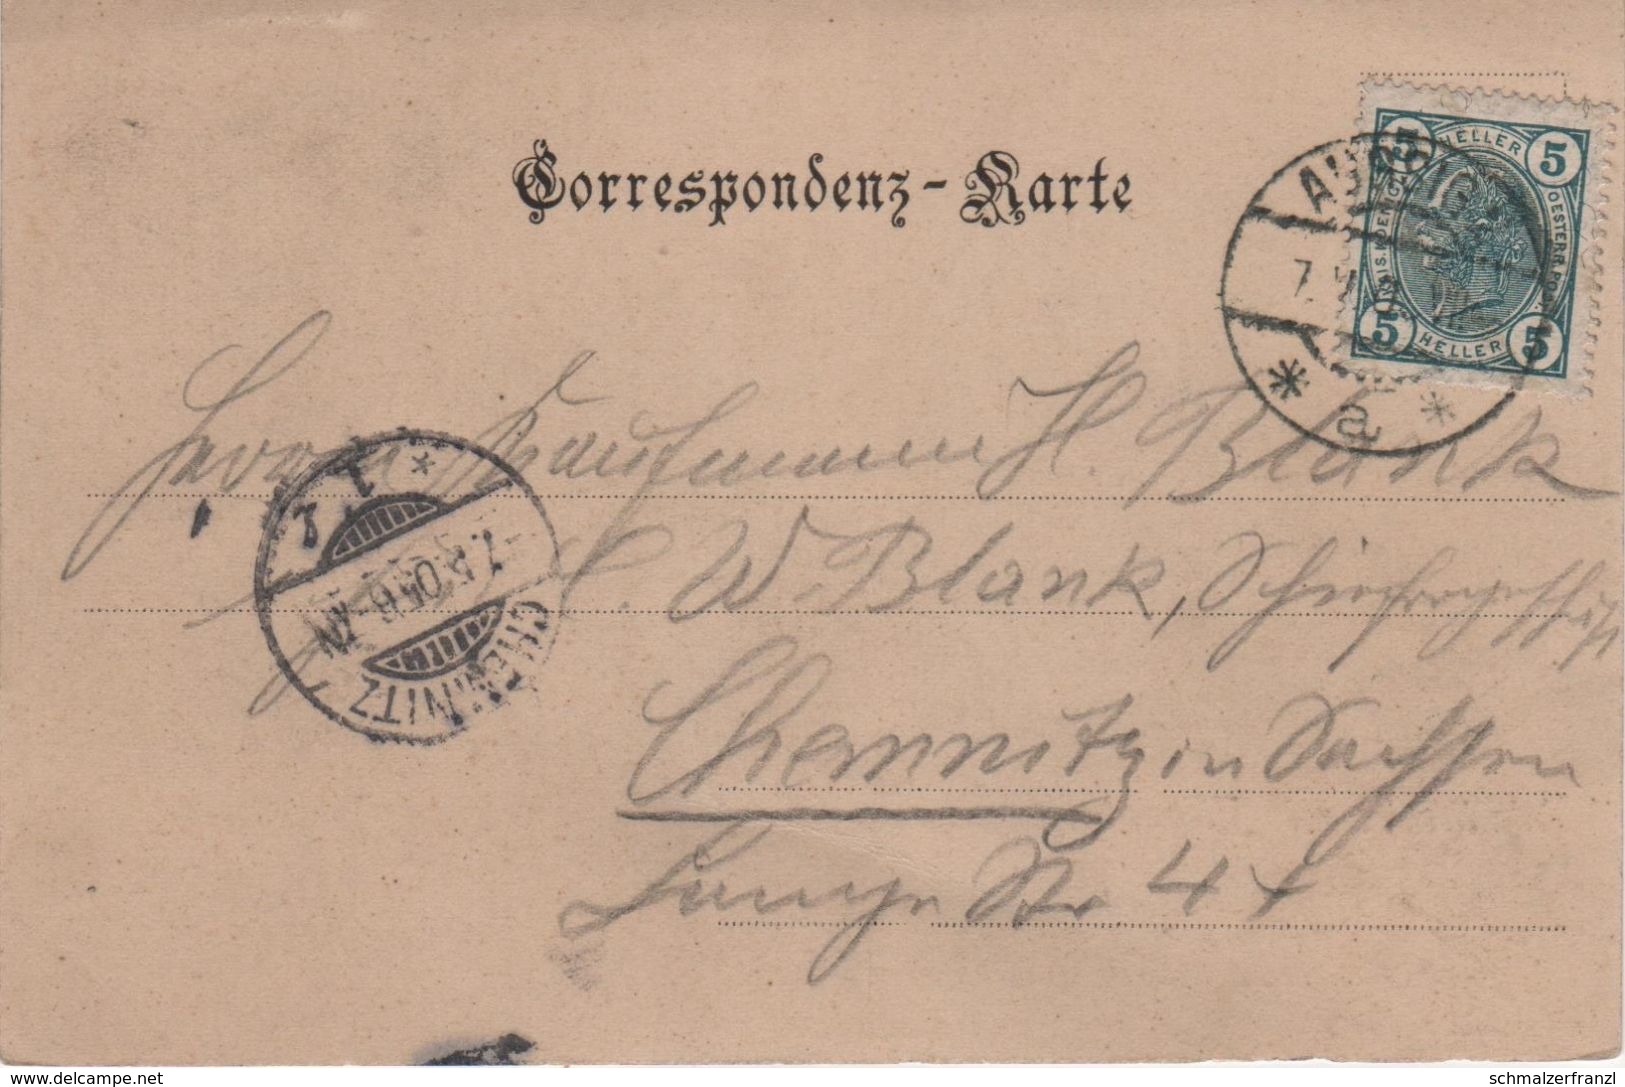 Correspondenz-Karte
5 HELLER 5
KAIS. KOENIGL. OESTERR. POST.
5 HELLER 5
AUSSIG
7.
* a *
Herrn Kaufmann H. Blank
W. Blank, Schiefergeschäft
Chemnitz in Sachsen
Lange Str 4
CHEMNITZ
7.5.05.6-7N
* 1
www.delcampe.net
schmalzerfranzl